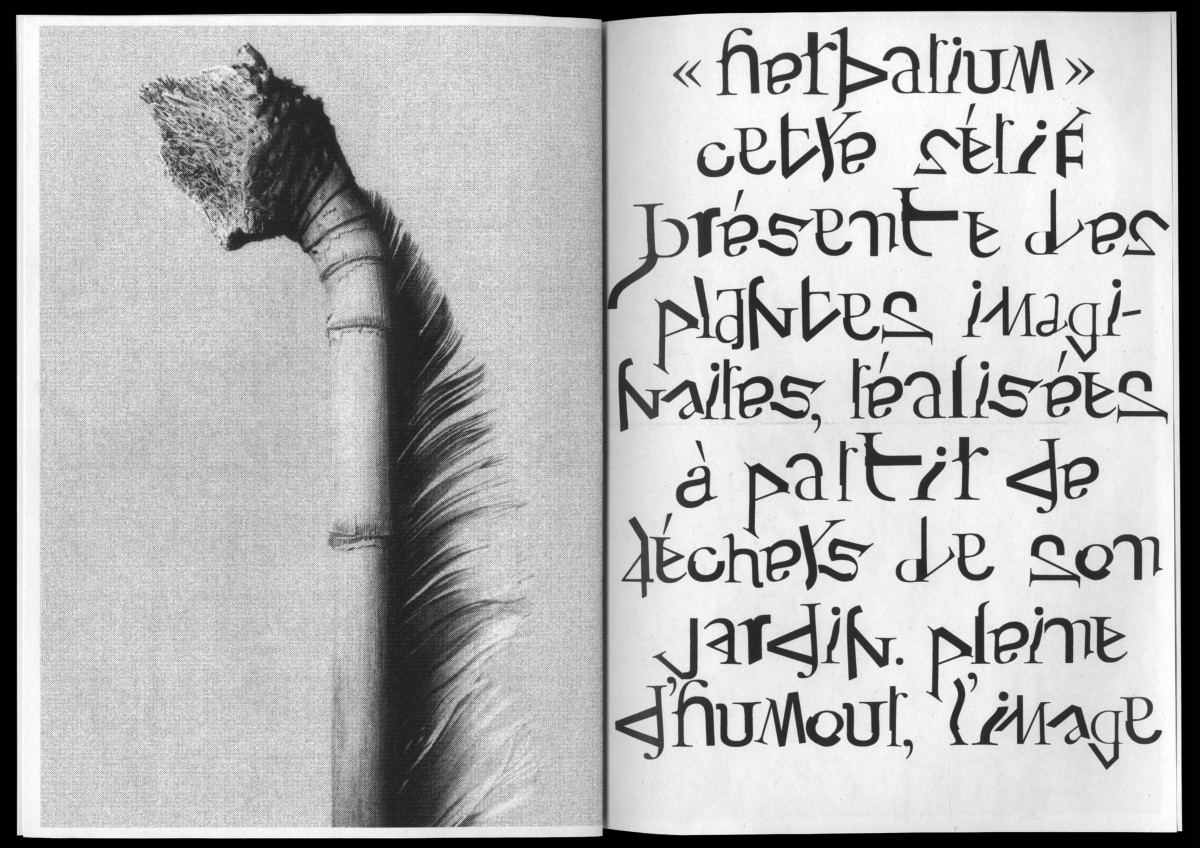 « herbarium »
cette série
présente des
plantes imagi-
naires, réalisées
à partir de
déchets de son
jardin. pleine
d'humour, l'image